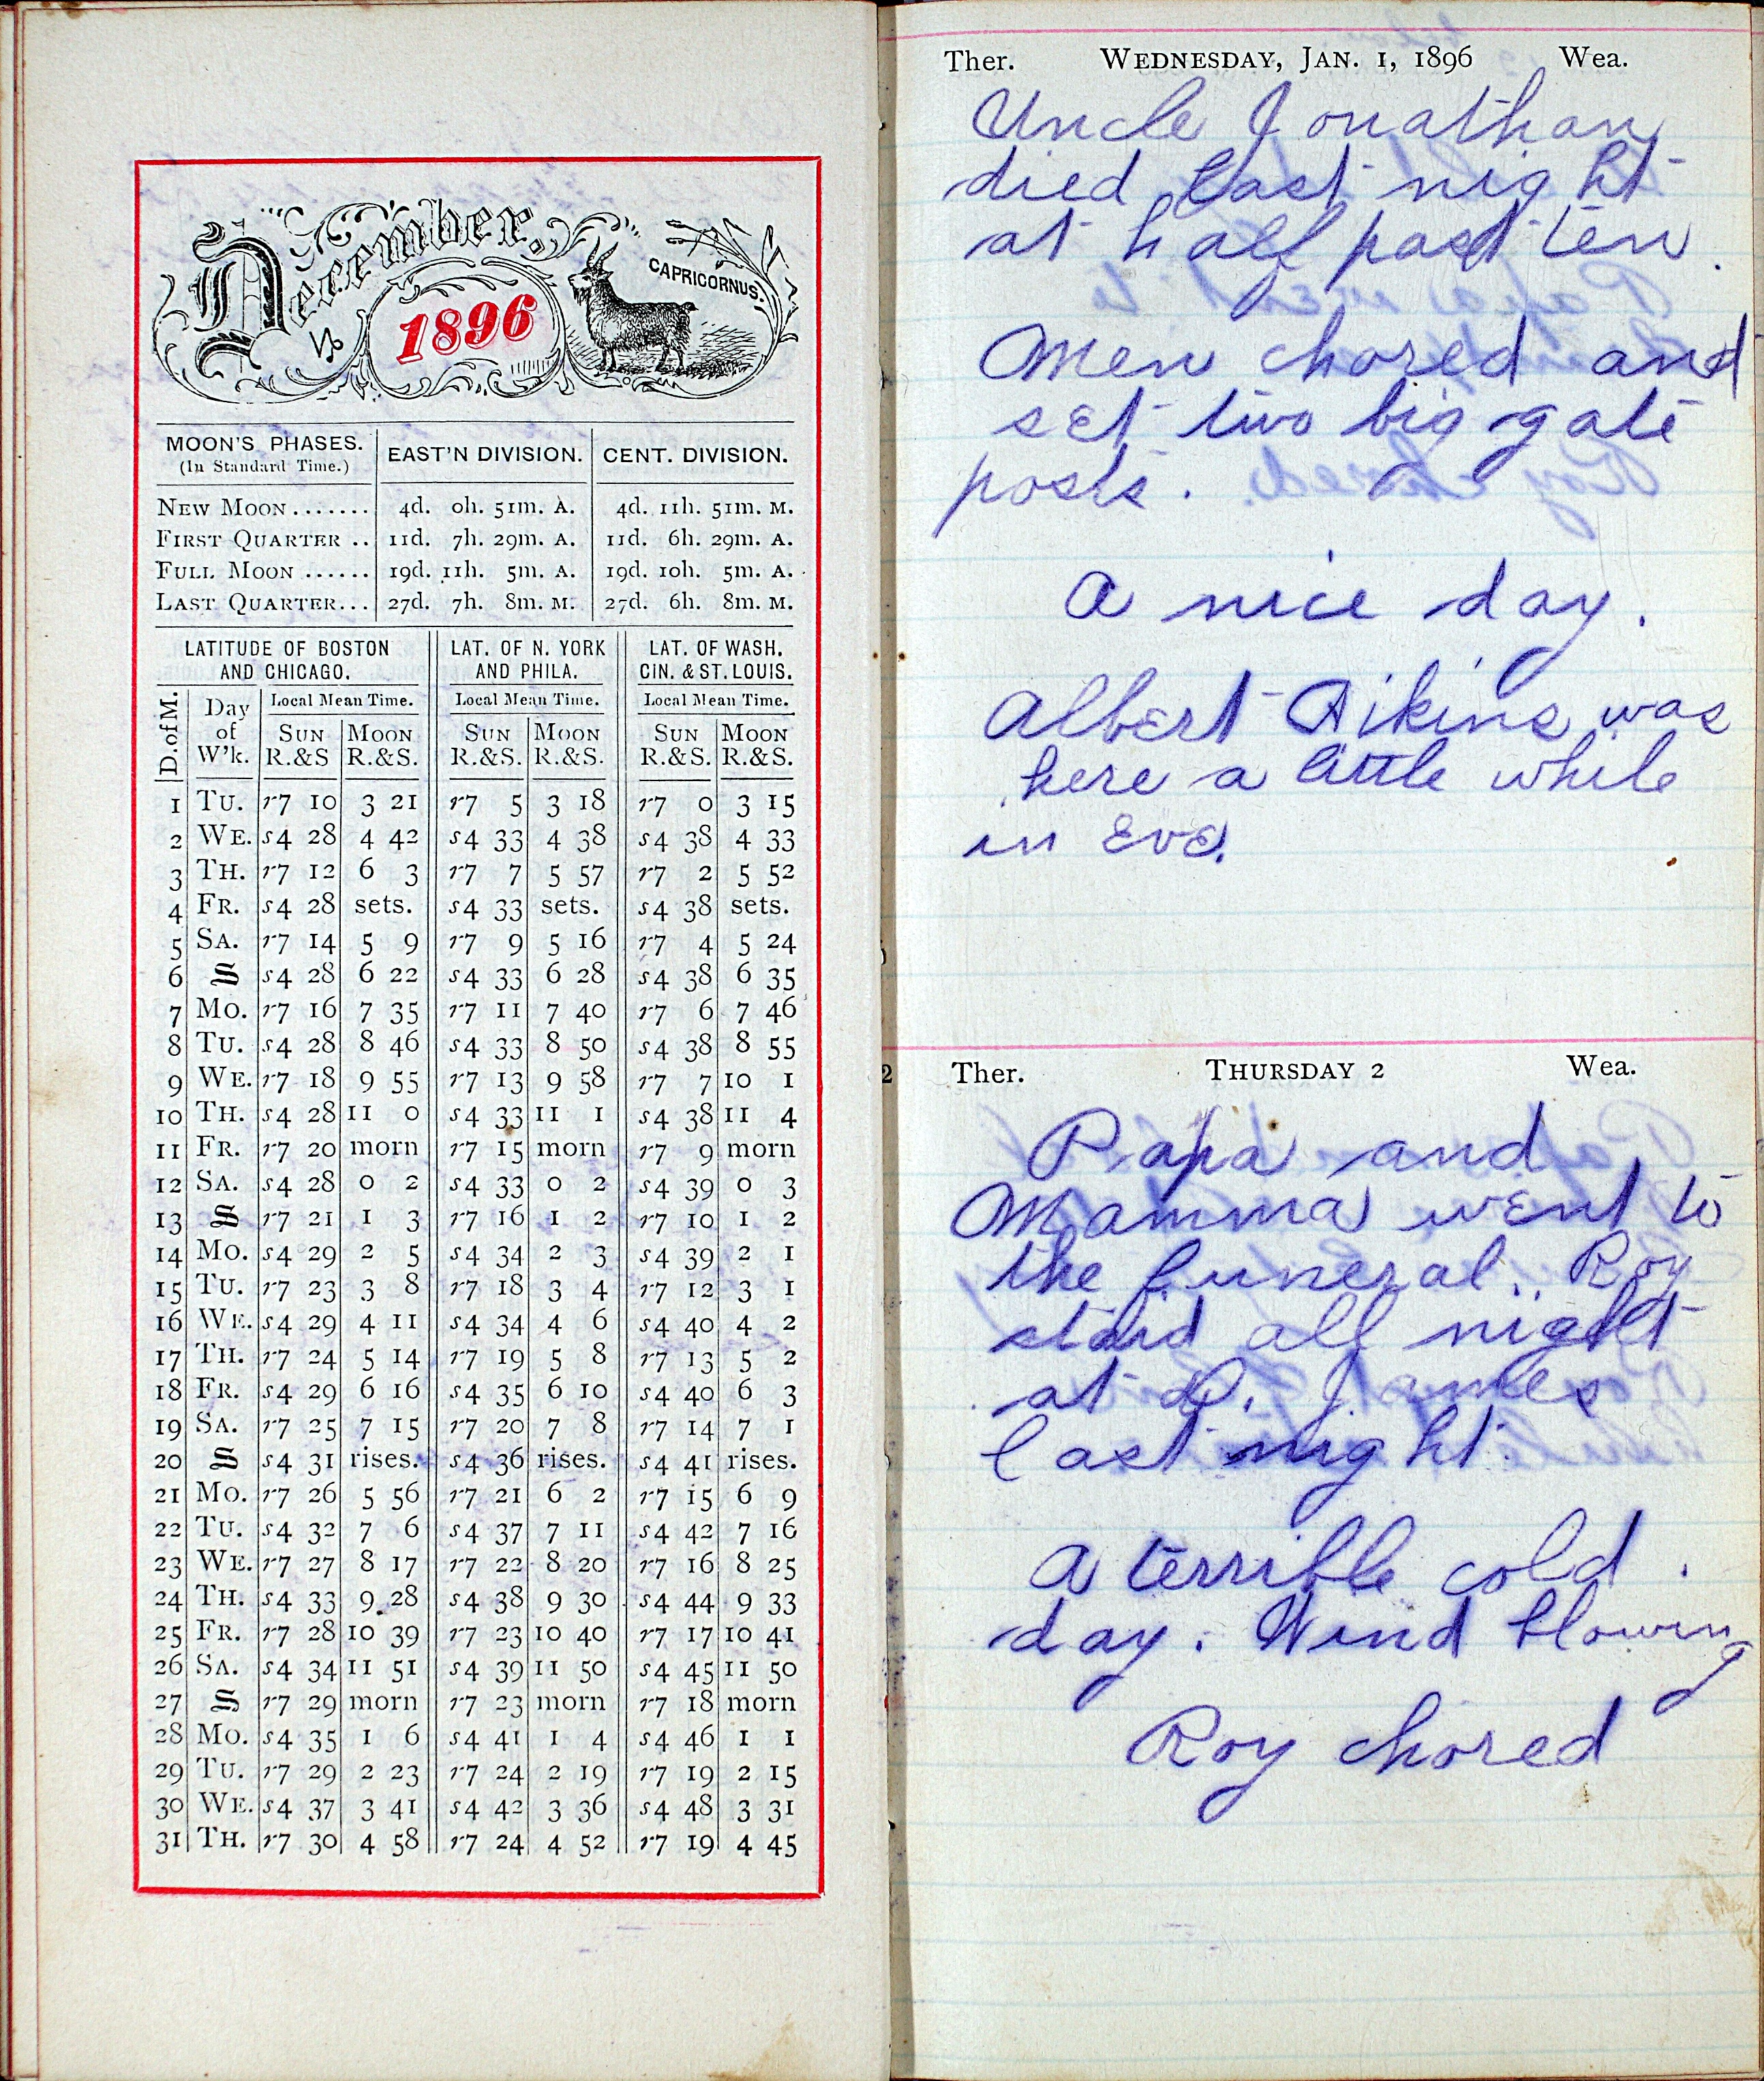 December,
1896
CAPRICORNUS.
MOON'S PHASES. (In Standard Time.) EAST'N DIVISION. CENT. DIVISION.
NEW MOON....... 4d. 0h. 51m. A. 4d. 11h. 51m. M.
FIRST QUARTER .. 11d. 7h. 29m. A. 11d. 6h. 29m. A.
FULL MOON ...... 19d. 11h. 5m. A. 19d. 10h. 5m. A.
LAST QUARTER... 27d. 7h. 8m. M. 27d. 6h. 8m. M.
LATITUDE OF BOSTON AND CHICAGO. LAT. OF N. YORK AND PHILA. LAT. OF WASH. CIN. & ST. LOUIS.
D. of M. Day of W'k. Local Mean Time. Local Mean Time. Local Mean Time.
SUN R.&S MOON R.&S. SUN R.&S. MOON R.&S. SUN R.&S. MOON R.&S.
1 TU. r7 10 3 21 r7 5 3 18 r7 0 3 15
2 WE. s4 28 4 42 s4 33 4 38 s4 38 4 33
3 TH. r7 12 6 3 r7 7 5 57 r7 2 5 52
4 FR. s4 28 sets. s4 33 sets. s4 38 sets.
5 SA. r7 14 5 9 r7 9 5 16 r7 4 5 24
6 S s4 28 6 22 s4 33 6 28 s4 38 6 35
7 MO. r7 16 7 35 r7 11 7 40 r7 6 7 46
8 TU. s4 28 8 46 s4 33 8 50 s4 38 8 55
9 WE. r7 18 9 55 r7 13 9 58 r7 7 10 1
10 TH. s4 28 11 0 s4 33 11 1 s4 38 11 4
11 FR. r7 20 morn r7 15 morn r7 9 morn
12 SA. s4 28 0 2 s4 33 0 2 s4 39 0 3
13 S r7 21 1 3 r7 16 1 2 r7 10 1 2
14 MO. s4 29 2 5 s4 34 2 3 s4 39 2 1
15 TU. r7 23 3 8 r7 18 3 4 r7 12 3 1
16 WE. s4 29 4 11 s4 34 4 6 s4 40 4 2
17 TH. r7 24 5 14 r7 19 5 8 r7 13 5 2
18 FR. s4 29 6 16 s4 35 6 10 s4 40 6 3
19 SA. r7 25 7 15 r7 20 7 8 r7 14 7 1
20 S s4 31 rises. s4 36 rises. s4 41 rises.
21 MO. r7 26 5 56 r7 21 6 2 r7 15 6 9
22 TU. s4 32 7 6 s4 37 7 11 s4 42 7 16
23 WE. r7 27 8 17 r7 22 8 20 r7 16 8 25
24 TH. s4 33 9 28 s4 38 9 30 s4 44 9 33
25 FR. r7 28 10 39 r7 23 10 40 r7 17 10 41
26 SA. s4 34 11 51 s4 39 11 50 s4 45 11 50
27 S r7 29 morn r7 23 morn r7 18 morn
28 MO. s4 35 1 6 s4 41 1 4 s4 46 1 1
29 TU. r7 29 2 23 r7 24 2 19 r7 19 2 15
30 WE. s4 37 3 41 s4 42 3 36 s4 48 3 31
31 TH. r7 30 4 58 r7 24 4 52 r7 19 4 45
Ther. WEDNESDAY, JAN. 1, 1896 Wea.
Uncle Jonathan
died last night
at half past ten.
Men chored and
set two big gate
posts.
A nice day.
Albert Aikins was
here a little while
in Eve.
Ther. THURSDAY 2 Wea.
Papa and
Mamma went to
the funeral. Roy
staid all night
at D. James
last night.
A terrible cold
day. Wind blowing
Roy chored